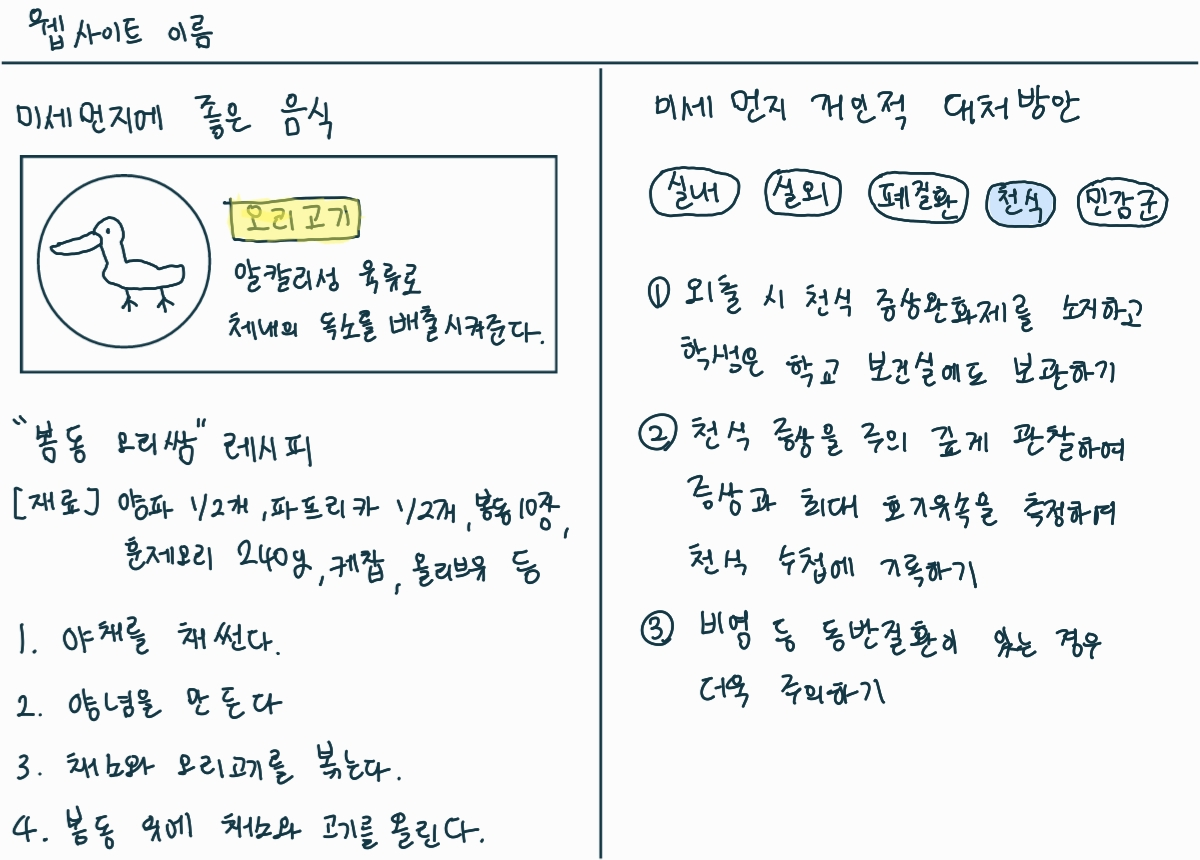 웹사이트 이름
미세먼지에 좋은 음식
오리고기
알칼리성 육류로
체내의 독소를 배출시켜준다.
"봄동 오리쌈" 레시피
[재료] 양파 1/2개, 파프리카 1/2개, 봄동 10장,
훈제오리 240g, 케찹, 올리브유 등
1. 야채를 채썬다.
2. 양념을 만든다
3. 채소와 오리고기를 볶는다.
4. 봄동 위에 채소와 고기를 올린다.
미세먼지 개인적 대처방안
실내 실외 폐질환 천식 민감군
① 외출 시 천식 증상완화제를 소지하고
학생은 학교 보건실에도 보관하기
② 천식 증상을 주의 깊게 관찰하여
증상과 최대 호기유속을 측정하며
천식 수첩에 기록하기
③ 비염 등 동반질환이 있는 경우
더욱 주의하기